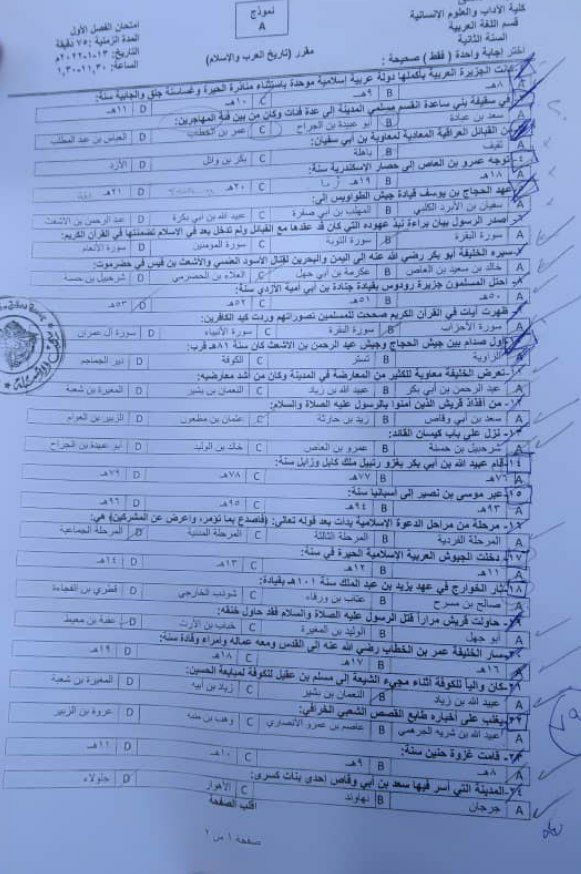 كلية الآداب والعلوم الإنسانية
قسم اللغة العربية
السنة الثانية
نموذج
A
مقرر (تاريخ العرب والإسلام)
امتحان الفصل الأول
المدة الزمنية: ٧٥ دقيقة
التاريخ: ١٣-١-٢٠٢٢م
الساعة: ١١,٣٠-١,٣٠
اختر إجابة واحدة ( فقط ) صحيحة :
كانت الجزيرة العربية بأكملها دولة عربية إسلامية موحدة باستثناء مناذرة الحيرة وغساسنة جلق والجابية سنة:
A ٨هـ B ٩هـ C ١٠هـ D ١١هـ
في سقيفة بني ساعدة انقسم مسلمي المدينة إلى عدة فئات وكان من بين فئة المهاجرين:
A سعد بن عبادة B أبو عبيدة بن الجراح C عمر بن الخطاب D العباس بن عبد المطلب
من القبائل العراقية المعادية لمعاوية بن أبي سفيان:
A ثقيف B باهلة C بكر بن وائل D الأزد
٤- توجه عمرو بن العاص إلى حصار الإسكندرية سنة:
A ١٨هـ B ١٩هـ C ٢٠هـ D ٢١هـ
عهد الحجاج بن يوسف قيادة جيش الطواويس إلى:
A سفيان بن الأبرد الكلبي B المهلب بن أبي صفرة C عبيد الله بن أبي بكرة D عبد الرحمن بن الأشعث
أصدر الرسول بيان براءة نبذ عهوده التي كان قد عقدها مع القبائل ولم تدخل بعد في الإسلام تضمنتها في القرآن الكريم:
A سورة البقرة B سورة التوبة C سورة المؤمنين D سورة الأنعام
سيره الخليفة أبو بكر رضي الله عنه إلى اليمن والبحرين لقتال الأسود العنسي والأشعث بن قيس في حضرموت:
A خالد بن سعيد بن العاص B عكرمة بن أبي جهل C العلاء بن الحضرمي D شرحبيل بن حسنة
٨- احتل المسلمون جزيرة رودوس بقيادة جنادة بن أبي أمية الأزدي سنة:
A ٥٠هـ B ٥١هـ C ٥٢هـ D ٥٣هـ
ظهرت آيات في القرآن الكريم صححت للمسلمين تصوراتهم وردت كيد الكافرين:
A سورة الأحزاب B سورة البقرة C سورة الأنبياء D سورة آل عمران
أول صدام بين جيش الحجاج وجيش عبد الرحمن بن الأشعث كان سنة ٨١هـ قرب:
A الزاوية B تستر C الكوفة D دير الجماجم
١١- تعرض الخليفة معاوية للكثير من المعارضة في المدينة وكان من أشد معارضيه:
A عبد الرحمن بن أبي بكر B عبيد الله بن زياد C النعمان بن بشير D المغيرة بن شعبة
١٢- من أفذاذ قريش الذين آمنوا بالرسول عليه الصلاة والسلام:
A سعد بن أبي وقاص B زيد بن حارثة C عثمان بن مظعون D الزبير بن العوام
١٣- نزل على باب كيسان القائد:
A شرحبيل بن حسنة B عمرو بن العاص C خالد بن الوليد D أبو عبيدة بن الجراح
١٤- قام عبيد الله بن أبي بكر بغزو رتبيل ملك كابل وزابل سنة:
A ٧٦هـ B ٧٧هـ C ٧٨هـ D ٧٩هـ
١٥- عبر موسى بن نصير إلى أسبانيا سنة:
A ٩٣هـ B ٩٤هـ C ٩٥هـ D ٩٦هـ
١٦- مرحلة من مراحل الدعوة الإسلامية بدأت بعد قوله تعالى: (فاصدع بما تؤمر، وأعرض عن المشركين) هي:
A المرحلة الفردية B المرحلة الثالثة C المرحلة المدنية D المرحلة الجماعية
١٧- دخلت الجيوش العربية الإسلامية الحيرة في سنة:
A ١١هـ B ١٢هـ C ١٣هـ D ١٤هـ
١٨- ثار الخوارج في عهد يزيد بن عبد الملك سنة ١٠١هـ بقيادة:
A صالح بن مسرح B عتاب بن ورقاء C شوذب الخارجي D قطري بن الفجاءة
حاولت قريش مراراً قتل الرسول عليه الصلاة والسلام فقد حاول خنقه:
A أبو جهل B الوليد بن المغيرة C خباب بن الأرت D عقبة بن معيط
سار الخليفة عمر بن الخطاب رضي الله عنه إلى القدس ومعه عماله وأمراء وقادة سنة:
A ١٦هـ B ١٧هـ C ١٨هـ D ١٩هـ
٢١- كان والياً للكوفة أثناء مجيء الشيعة إلى مسلم بن عقيل للكوفة لمبايعة الحسين:
A عبيد الله بن زياد B النعمان بن بشير C زياد بن أبيه D المغيرة بن شعبة
يغلب على أخباره طابع القصص الشعبي الخرافي:
A عبيد الله بن شريه الجرهمي B عاصم بن عمرو الأنصاري C وهب بن منبه D عروة بن الزبير
٢٣- قامت غزوة حنين سنة:
A ٨هـ B ٩هـ C ١٠هـ D ١١هـ
٢٤- المدينة التي أسر فيها سعد بن أبي وقاص إحدى بنات كسرى:
A جرجان B نهاوند C الأهواز D جلولاء
اقلب الصفحة
صفحة ١ من ٢